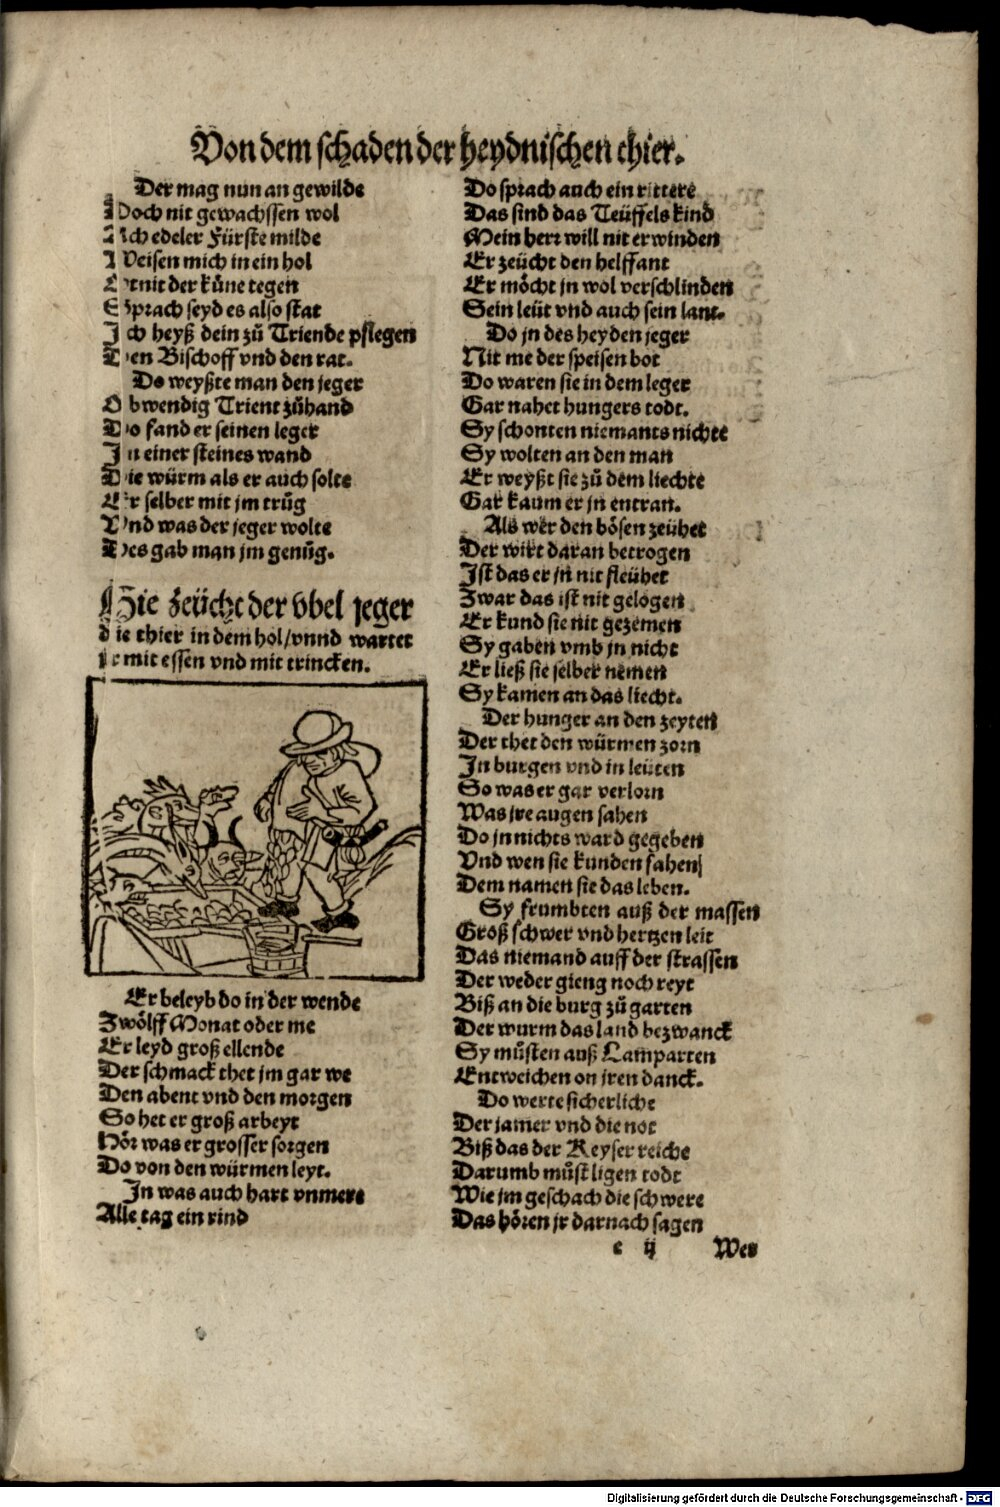 Von dem schaden der heydnischen thier.
Der mag nun an gewilde
Doch nit gewachssen wol
Ach edeler Fürste milde
Weisen mich in ein hol
Otnit der küne tegen
Sprach seyd es also stat
Ich heyß dein zů Triende pflegen
Den Bischoff vnd den rat.
Do weyßte man den jeger
Obwendig Trient zůhand
Do fand er seinen leger
In einer steines wand
Die würm als er auch solte
Er selber mit jm trůg
Vnd was der jeger wolte
Des gab man jm genůg.
Hie zeücht der vbel jeger
die thier in dem hol/vnnd wartet
jr mit essen vnd mit trincken.
Er beleyb do in der wende
Zwölff Monat oder me
Er leyd groß ellende
Der schmack thet jm gar we
Den abent vnd den morgen
So het er groß arbeyt
Hör was er grosser sorgen
Do von den würmen leyt.
In was auch hart vnmere
Alle tag ein rind
Do sprach auch ein rittere
Das sind das Teüffels kind
Mein hertz will nit erwinden
Er zeücht den helffant
Er möcht jn wol verschlinden
Sein leüt vnd auch sein lant.
Do jn des heyden jeger
Nit me der speisen bot
Do waren sie in dem leger
Gar nahet hungers todt.
Sy schonten niemants nichte
Sy wolten an den man
Er weyßt sie zů dem liechte
Gar kaum er jn entran.
Als wer den bösen zeühet
Der wirt daran betrogen
Ist das er jn nit fleühet
Zwar das ist nit gelogen
Er kund sie nit gezemen
Sy gaben vmb jn nicht
Er ließ sie selber nemen
Sy kamen an das liecht.
Der hunger an den zeyten
Der thet den würmen zorn
In burgen vnd in leüten
So was er gar verlorn
Was jre augen sahen
Do jn nichts ward gegeben
Vnd wen sie kunden fahen
Dem namen sie das leben.
Sy frumbten auß der massen
Groß schwer vnd hertzen leit
Das niemand auff der strassen
Der weder gieng noch reyt
Biß an die burg zů garten
Der wurm das land bezwanck
Sy můsten auß Lamparten
Entweichen on jren danck.
Do werte sicherliche
Der jamer vnd die not
Biß das der Keyser reiche
Darumb můst ligen todt
Wie jm geschach die schwere
Das hören jr darnach sagen
e ij Wes
Digitalisierung gefördert durch die Deutsche Forschungsgemeinschaft - DFG